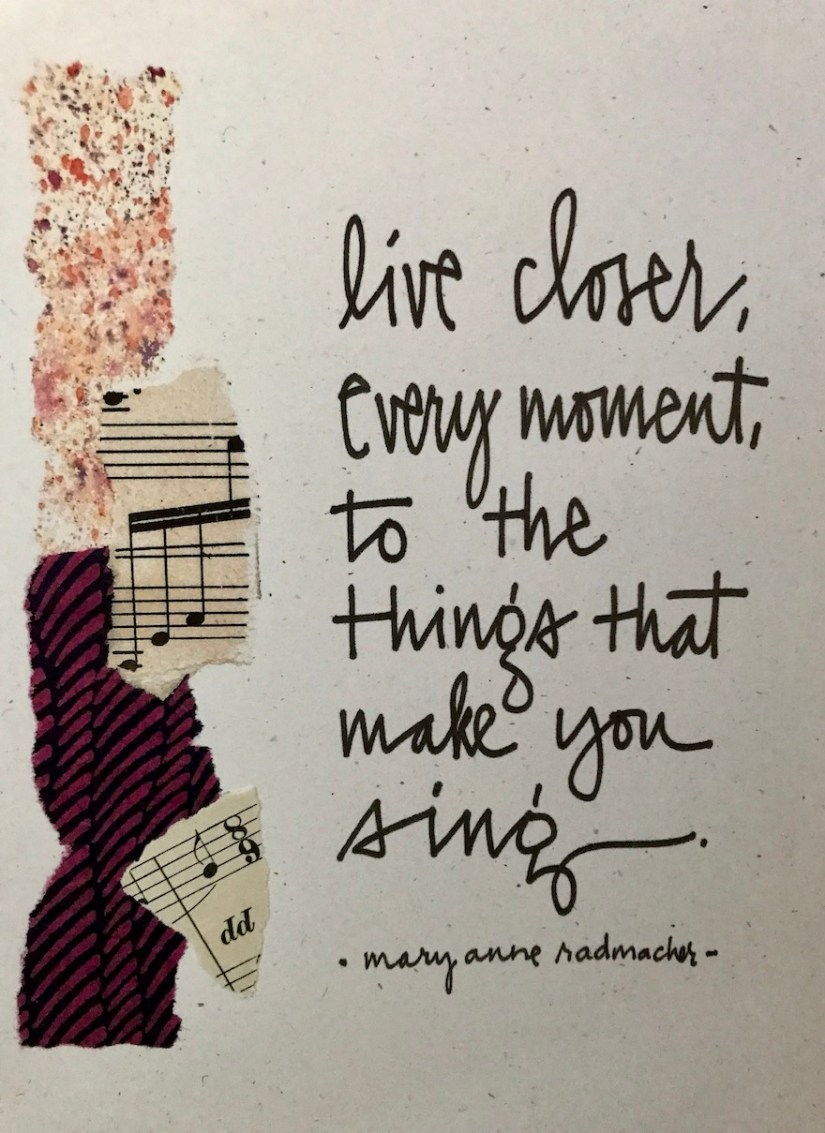 live closer,
every moment,
to the
things that
make you
sing.
. mary anne radmacher -
6/8
pp